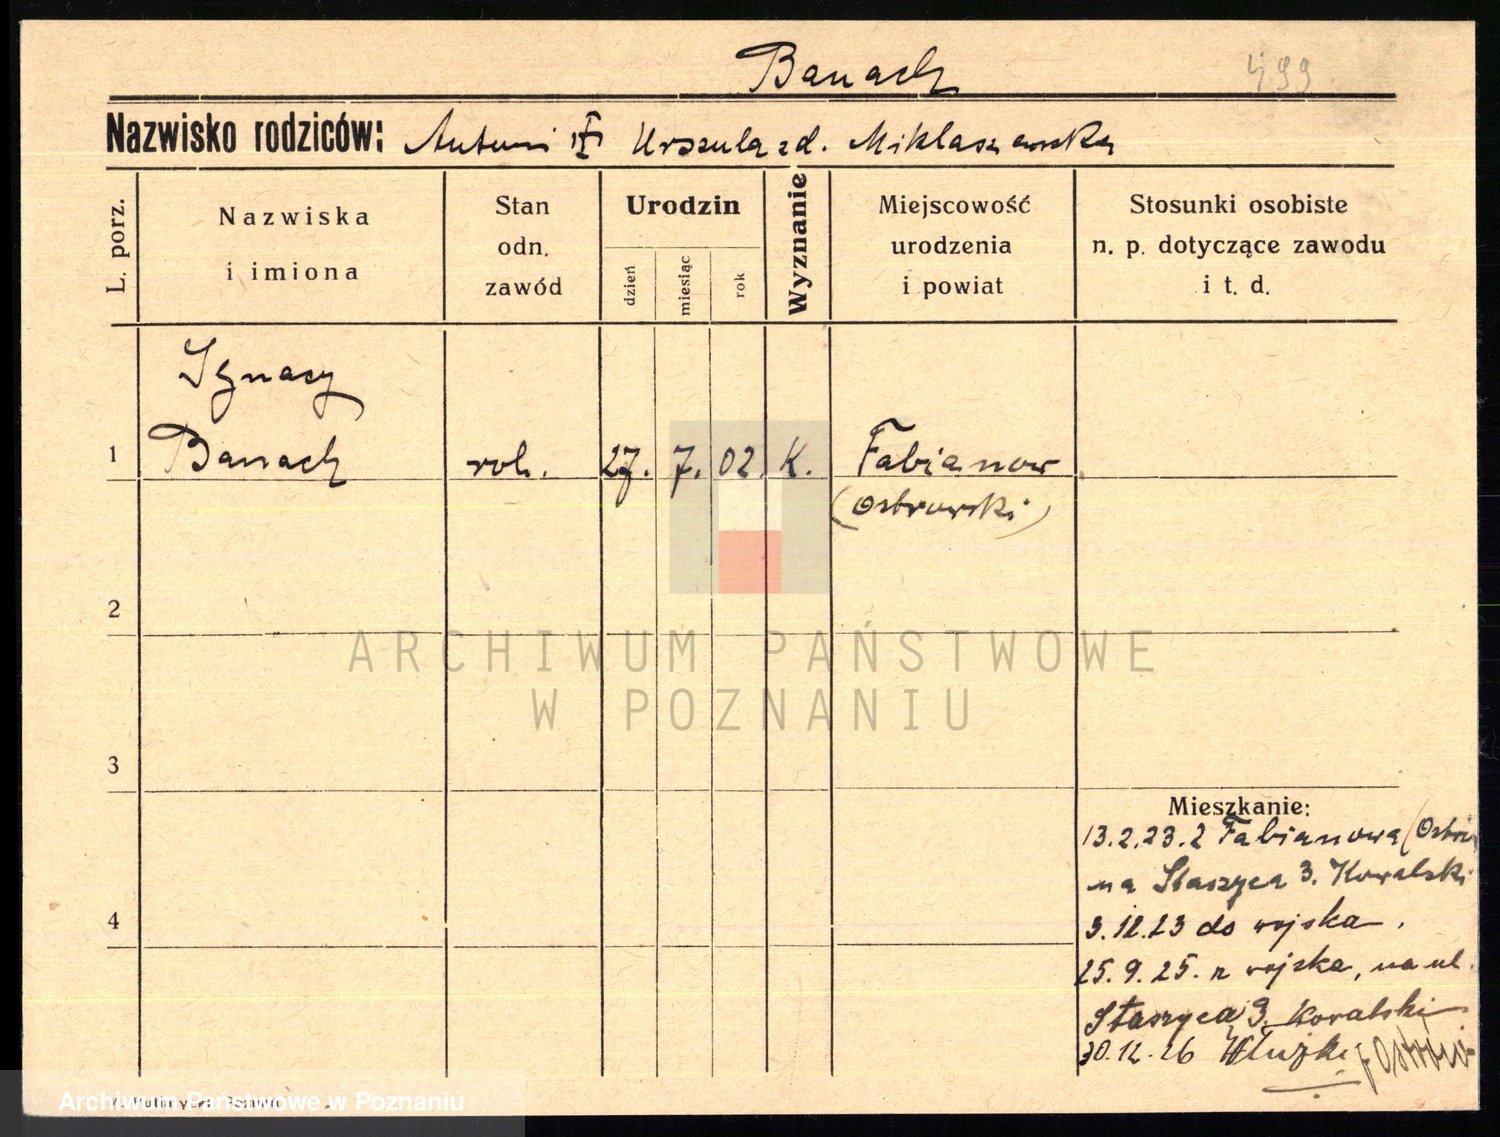 Banach
499
Nazwisko rodziców: Antoni Urszula zd. Miklaszewska
L. porz.
Nazwiska
i imiona
Stan
odn.
zawód
Urodzin
dzień
miesiąc
rok
Wyznanie
Miejscowość
urodzenia
i powiat
Stosunki osobiste
n. p. dotyczące zawodu
i t. d.
Ignacy
1 Banach rob. 27. 7. 02. K. Fabianow
(Ostrowski)
2
ARCHIWUM PAŃSTWOWE
W POZNANIU
3
Mieszkanie:
13.2.23. z Fabianowa (Ostrów
na Staszyca 3. Kowalski
4
3.12.23 do wojska.
25.9.25. z wojska, na ul.
Staszyca 3. Kowalski
30.12.26
Archiwum Państwowe w Poznaniu